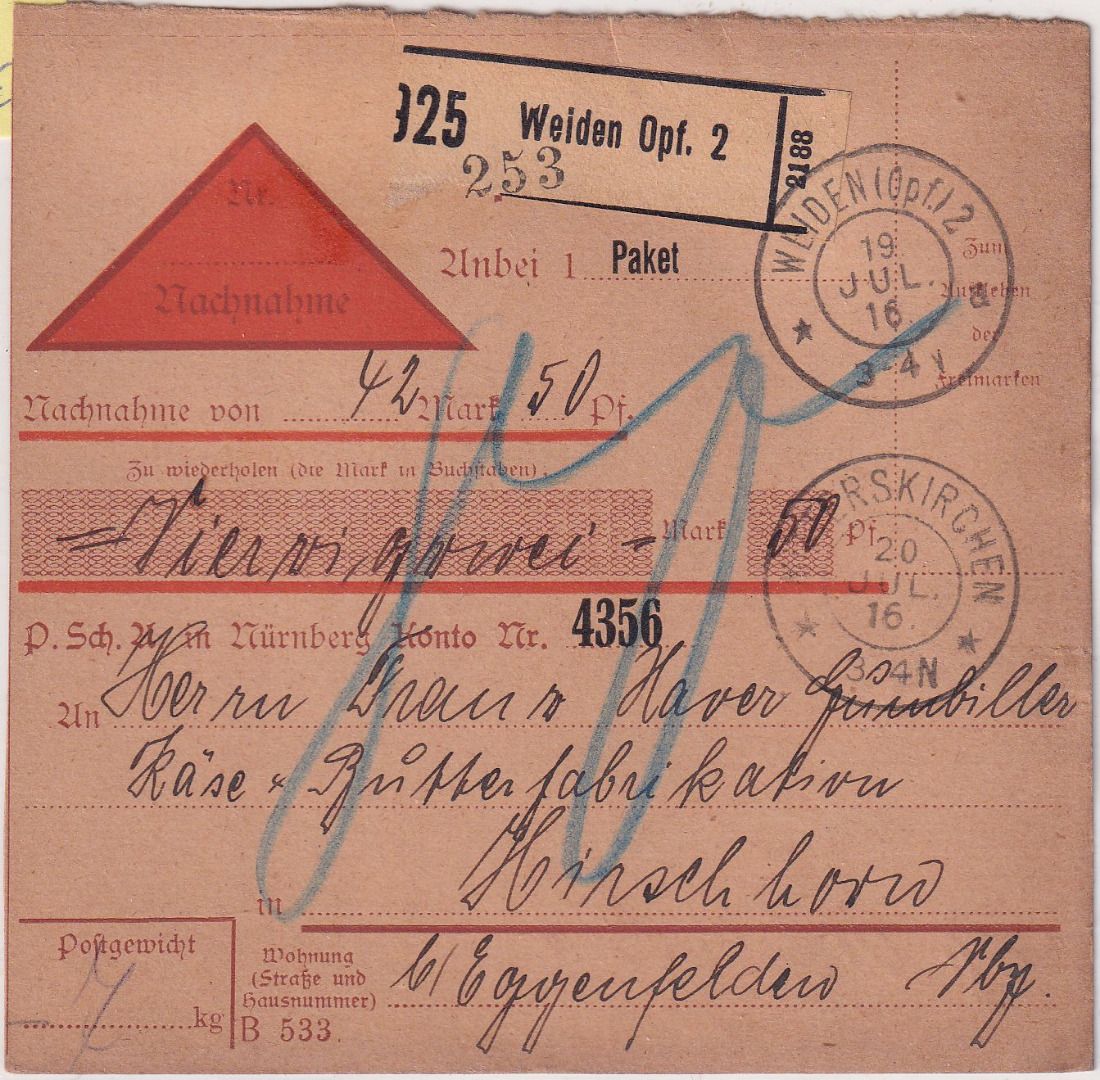 925 Weiden Opf. 2
2188
253
Nr.
Nachnahme
Anbei 1 Paket
WEIDEN (Opf.) 2
19
JUL.
16.
3-4
a
Zum
Aufkleben
der
Freimarken
Nachnahme von 42 Mark 50 Pf.
Zu wiederholen (die Mark in Buchstaben):
= Vierzigzwei = Mark 50 Pf.
ERSKIRCHEN
20
JUL.
16.
3-4N
P. Sch. A. in Nürnberg Konto Nr. 4356
An Herrn Franz Xaver
Käse & Butterfabrikation
in Hirschhorn
Wohnung
(Straße und
Hausnummer)
b/ Eggenfelden Nby.
Postgewicht
7 kg
B 533.